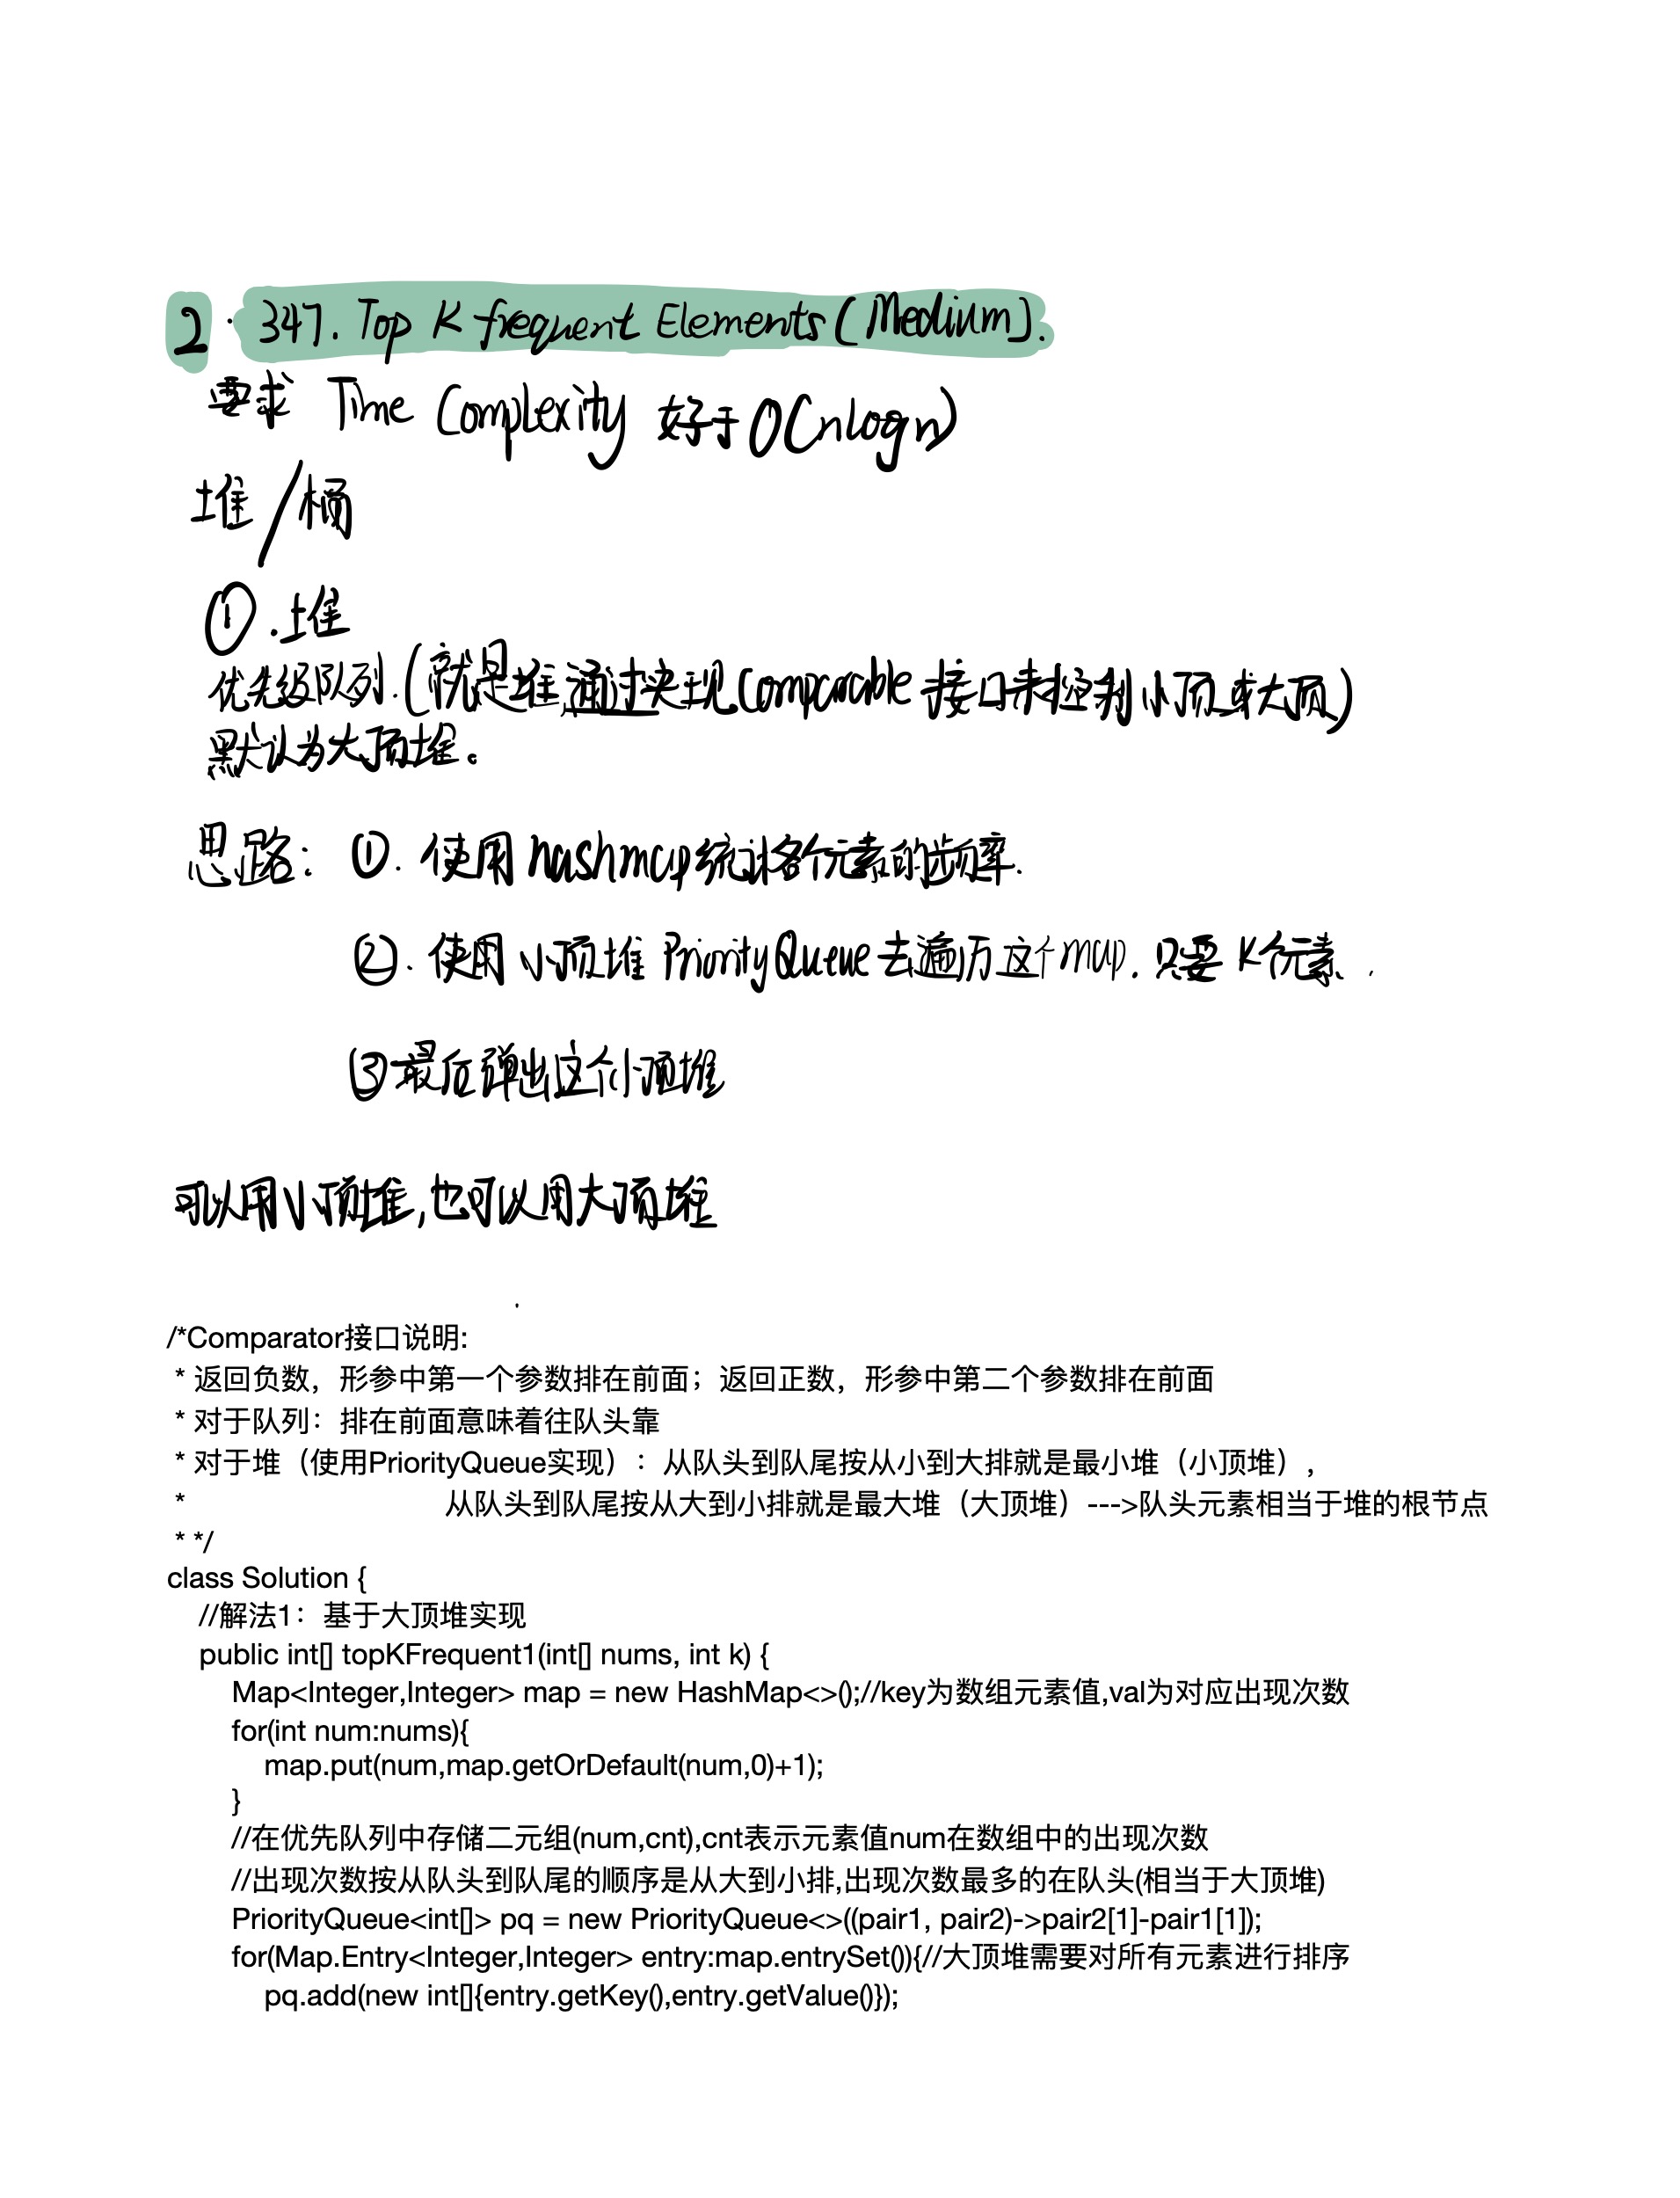 2. 347. Top K frequent Elements (Medium).
要求 Time Complexity 好于 O(nlogn)
堆/桶
①.堆
优先级队列.(就是堆,通过实现Comparable 接口来控制小顶or大顶)
默认为大顶堆。
思路: ①. 使用hashmap统计各个元素的频率.
②. 使用小顶堆 PriorityQueue去遍历这个map. 只要 K个元素.
③最后弹出这个小顶堆
可以用小顶堆,也可以用大顶堆
/*Comparator接口说明:
* 返回负数，形参中第一个参数排在前面；返回正数，形参中第二个参数排在前面
* 对于队列：排在前面意味着往队头靠
* 对于堆（使用PriorityQueue实现）：从队头到队尾按从小到大排就是最小堆（小顶堆），
* 从队头到队尾按从大到小排就是最大堆（大顶堆）--->队头元素相当于堆的根节点
* */
class Solution {
//解法1：基于大顶堆实现
public int[] topKFrequent1(int[] nums, int k) {
Map<Integer,Integer> map = new HashMap<>();//key为数组元素值,val为对应出现次数
for(int num:nums){
map.put(num,map.getOrDefault(num,0)+1);
}
//在优先队列中存储二元组(num,cnt),cnt表示元素值num在数组中的出现次数
//出现次数按从队头到队尾的顺序是从大到小排,出现次数最多的在队头(相当于大顶堆)
PriorityQueue<int[]> pq = new PriorityQueue<>((pair1, pair2)->pair2[1]-pair1[1]);
for(Map.Entry<Integer,Integer> entry:map.entrySet()){//大顶堆需要对所有元素进行排序
pq.add(new int[]{entry.getKey(),entry.getValue()});